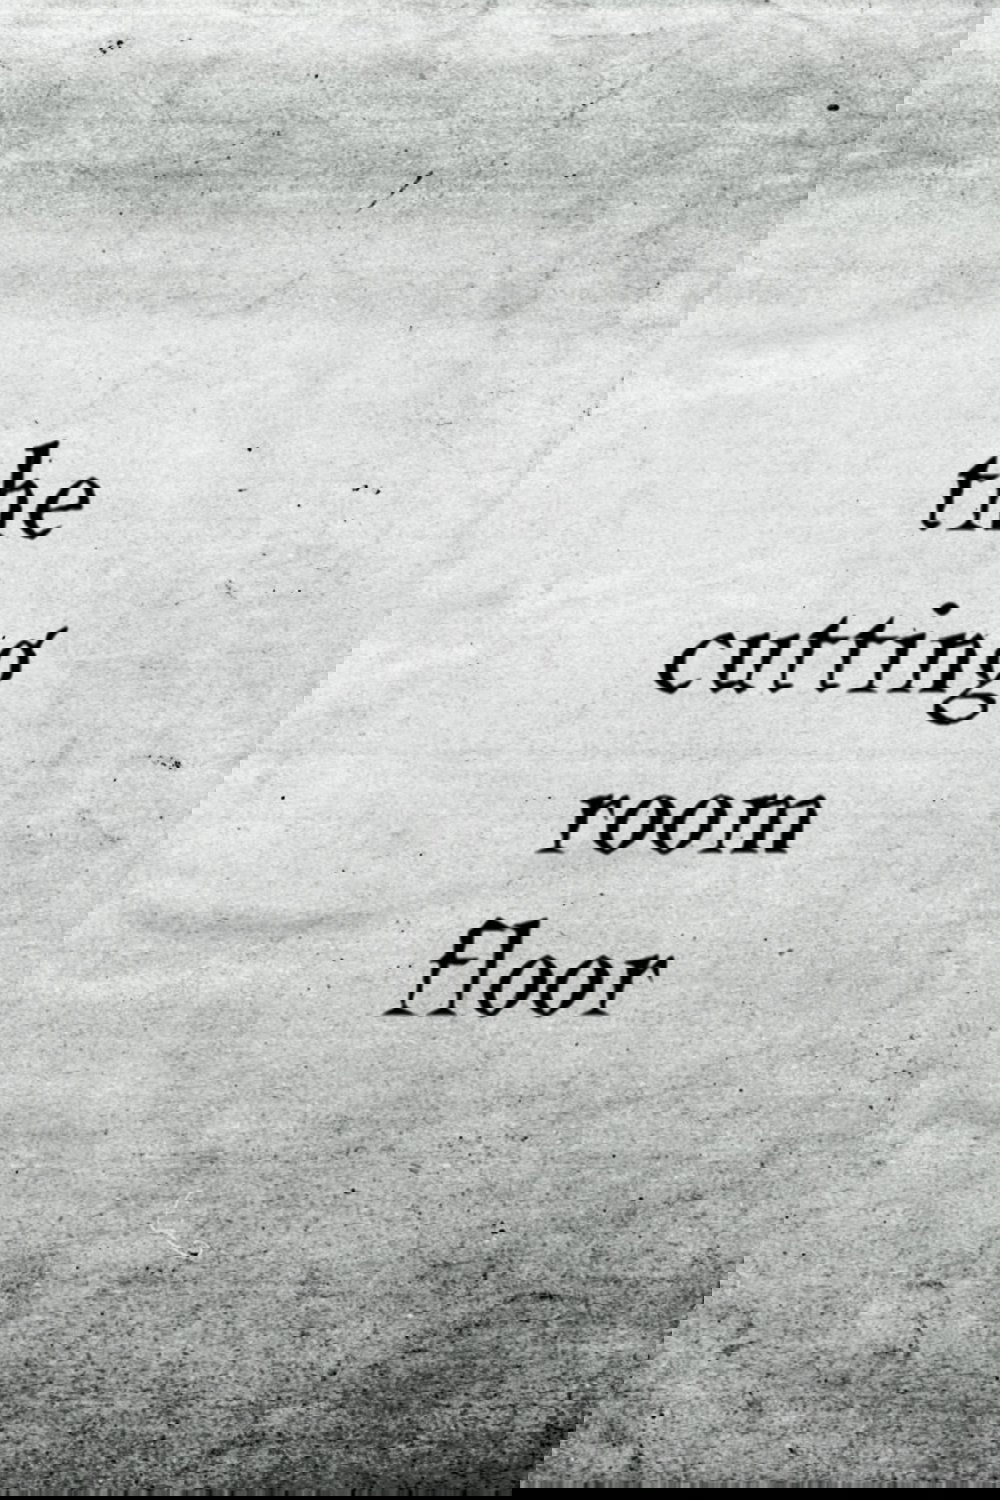 the
cutting
room
floor